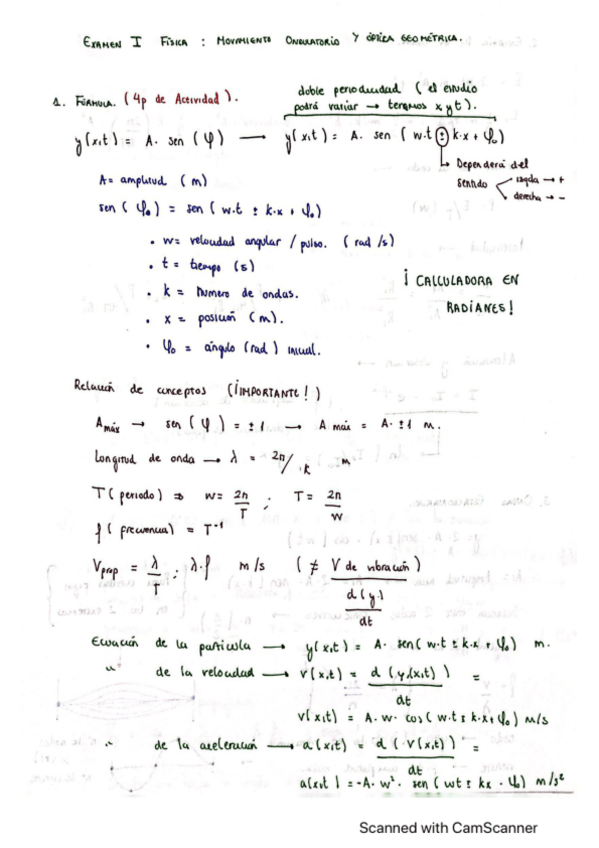 EXAMEN I FÍSICA : MOVIMIENTO ONDULATORIO Y ÓPTICA GEOMÉTRICA.
doble periodicidad ( el estudio
podrá variar → tenemos x, y t ).
1. FÓRMULA. ( 4p de Actividad ).
y(x,t) = A. sen ( φ ) → y(x,t) = A. sen ( w.t ± k.x + φ₀ )
Dependerá del
sentido
izqda → +
derecha → -
A = amplitud ( m )
sen ( φ₀ ) = sen ( w.t ± k.x + φ₀ )
• w = velocidad angular / pulso. ( rad /s )
• t = tiempo (s)
• k = número de ondas.
• x = posición ( m ).
• φ₀ = ángulo ( rad ) inicial.
¡ CALCULADORA EN
RADIANES !
Relación de conceptos ( ¡IMPORTANTE! )
A máx → sen ( φ ) = ± 1 → A máx = A. ± 1 m.
Longitud de onda → λ = 2π / k m
T ( periodo ) ⇒ w = 2π / T ; T = 2π / w
f ( frecuencia ) = T⁻¹
V prop = λ / T ; λ.f m/s ( ≠ V de vibración )
d ( y. ) / dt
Ecuación de la partícula → y(x,t) = A. sen ( w.t ± k.x + φ₀ ) m.
" de la velocidad → v(x,t) = d ( y(x,t) ) / dt =
v(x,t) = A. w. cos ( w.t ± k.x + φ₀ ) m/s
" de la aceleración → a(x,t) = d ( v(x,t) ) / dt =
a(x,t) = -A. w². sen ( wt ± kx . φ₀ ) m/s²
Scanned with CamScanner